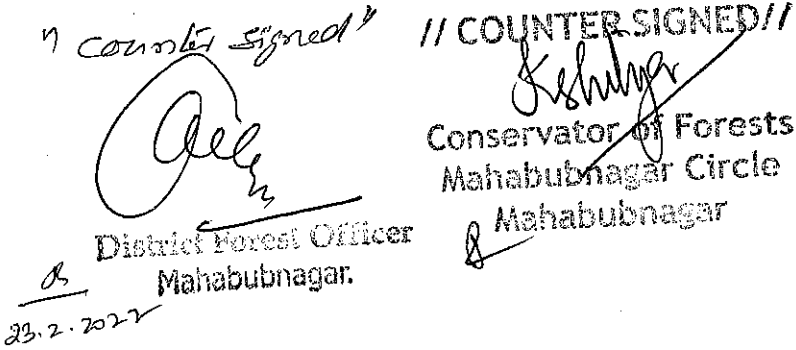 " Counter signed"
District Forest Officer
Mahabubnagar.
23.2.2022
// COUNTER SIGNED//
Conservator of Forests
Mahabubnagar Circle
Mahabubnagar